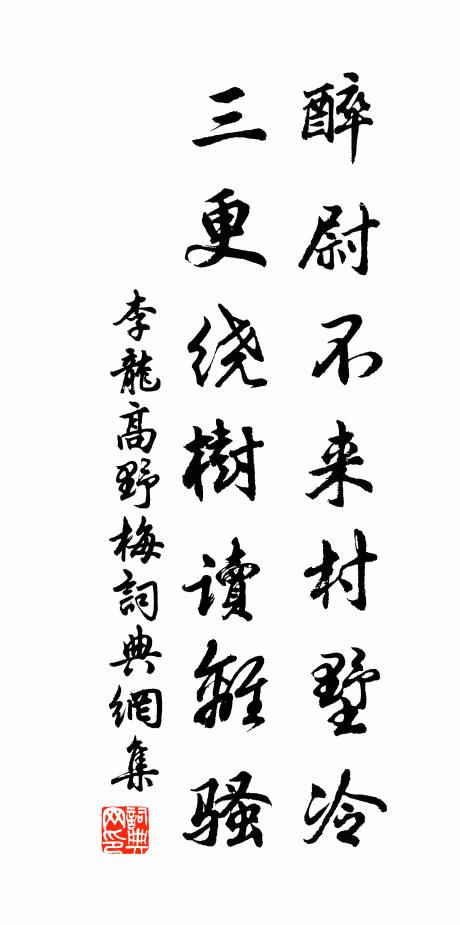 醉尉不来村墅冷
三更绕樹读離骚
李龍高野梅詞典網集
詞典网印